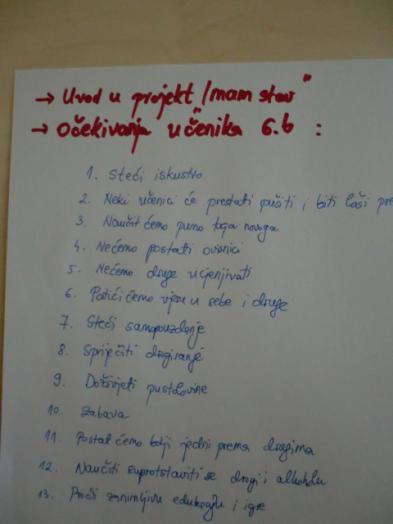 → Uvod u projekt „Imam stav"
→ Očekivanja učenika 6.b :
1. Steći iskustvo
2. Neki učenici će prestati pušiti i biti loši
3. Naučit ćemo puno toga novoga
4. Nećemo postati ovisnici
5. Nećemo druge ucjenjivati
6. Potići ćemo vjeru u sebe i druge
7. Steći samopouzdanje
8. Spriječiti drogiranje
9. Doživjeti pustolovine
10. Zabava
11. Postat ćemo bolji jedni prema drugima
12. Naučiti suprotstaviti se drogi i alkoholu
13. Proći zanimljivu edukaciju i igre